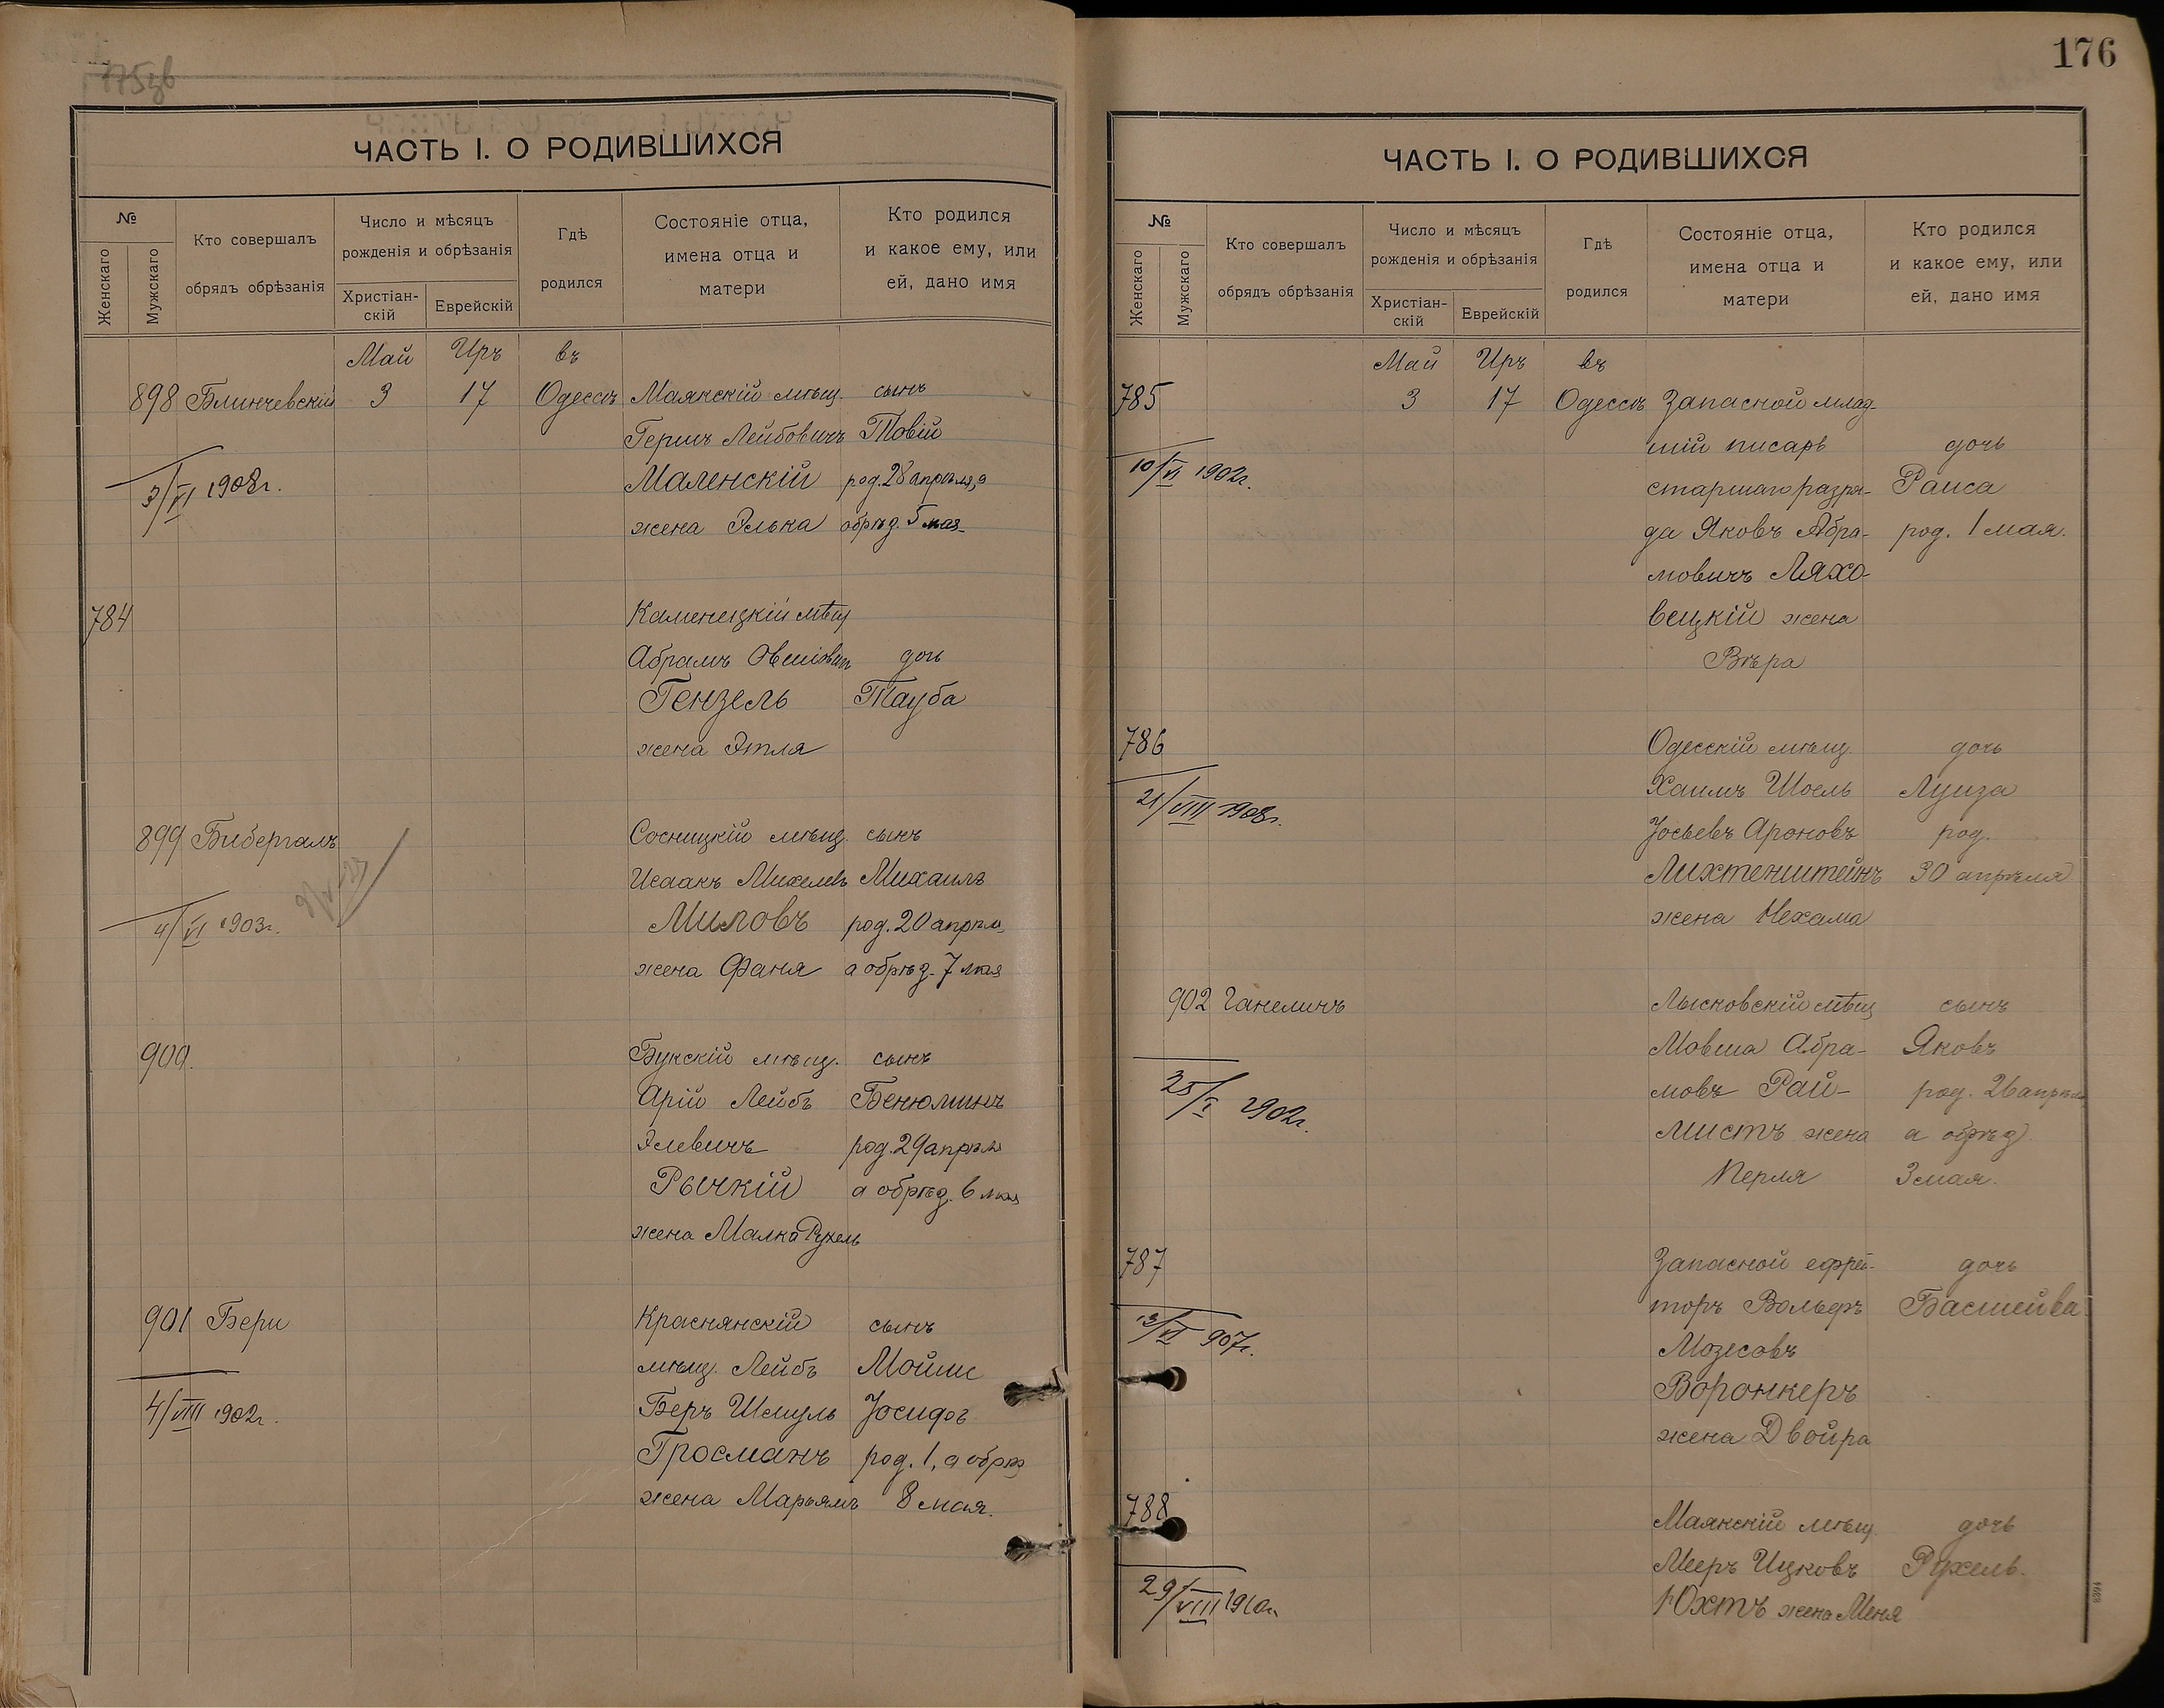 175зв
ЧАСТЬ I. О РОДИВШИХСЯ
№
Женскаго
Мужскаго
Кто совершалъ
обрядъ обрѣзанія
Число и мѣсяцъ
рожденія и обрѣзанія
Христіан-
скій
Еврейскій
Гдѣ
родился
Состояніе отца,
имена отца и
матери
Кто родился
и какое ему, или
ей, дано имя
Май Иръ въ
898 Блинчевскій 3 17 Одессѣ Маякскій мѣщ. сынъ
Гершъ Лейбовичъ Товій
3/VI 1908г. Маленскій род. 28 апрѣля, а
жена Элька обрѣз. 5 мая
784 Каменецкій мѣщ
Абрамъ Овшіовичъ дочь
Гензель Тауба
жена Этля
899 Бибергалъ Сосницкій мѣщ. сынъ
Исаакъ Михелевъ Михаилъ
4/VI 1903г. Миловъ род. 20 апрѣля
жена Фаня а обрѣз. 7 мая
900. Букскій мѣщ. сынъ
Арій Лейбъ Бенюминъ
Элевичъ род. 29 апрѣля
Рычкій а обрѣз. 6 мая
жена Малка Рухель
901 Бери Краснянскій сынъ
мѣщ. Лейбъ Мойше
4/VIII 1902г. Беръ Шмуль Іосифъ
Гросманъ род. 1, а обрѣз
жена Марьямъ 8 мая.
176
ЧАСТЬ I. О РОДИВШИХСЯ
№
Женскаго
Мужскаго
Кто совершалъ
обрядъ обрѣзанія
Число и мѣсяцъ
рожденія и обрѣзанія
Христіан-
скій
Еврейскій
Гдѣ
родился
Состояніе отца,
имена отца и
матери
Кто родился
и какое ему, или
ей, дано имя
Май Иръ въ
785 3 17 Одессѣ Запасной млад-
шій писарь дочь
10/VI 1902г. старшаго разря- Раиса
да Яковъ Абра- род. 1 мая.
мовичъ Ляхо-
вецкій жена
Вѣра
786 Одесскій мѣщ. дочь
21/VIII 1908г. Хаимъ Шоель Луиза
Іосьевъ Ароновъ род.
Лихтенштейнъ 30 апрѣля
жена Нехама
902 Ганелинъ Лысковскій мѣщ сынъ
Мовша Абра- Яковъ
25/X 1902г. мовъ Рай- род. 26 апрѣля
мистъ жена а обрѣз
Перля 3 мая.
787 Запасной ефрей- дочь
13/VI 907г. торъ Вольфъ Басшейва
Мозесовъ
Воронкеръ
жена Двойра
788 Маякскій мѣщ. дочь
Мееръ Ицковъ Рухель.
29/VIII 1910г. Юхтъ жена Меня